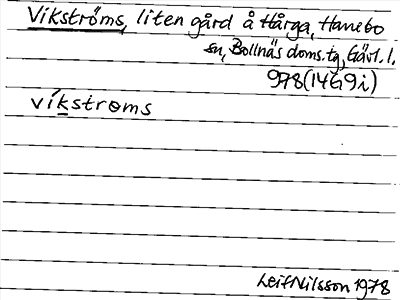 Vikströms, liten gård å Hårga, Hanebo
sn, Bollnäs doms. tg, Gävl. l.
978 (14G9i)
víkstroms
Leif Nilsson 1978